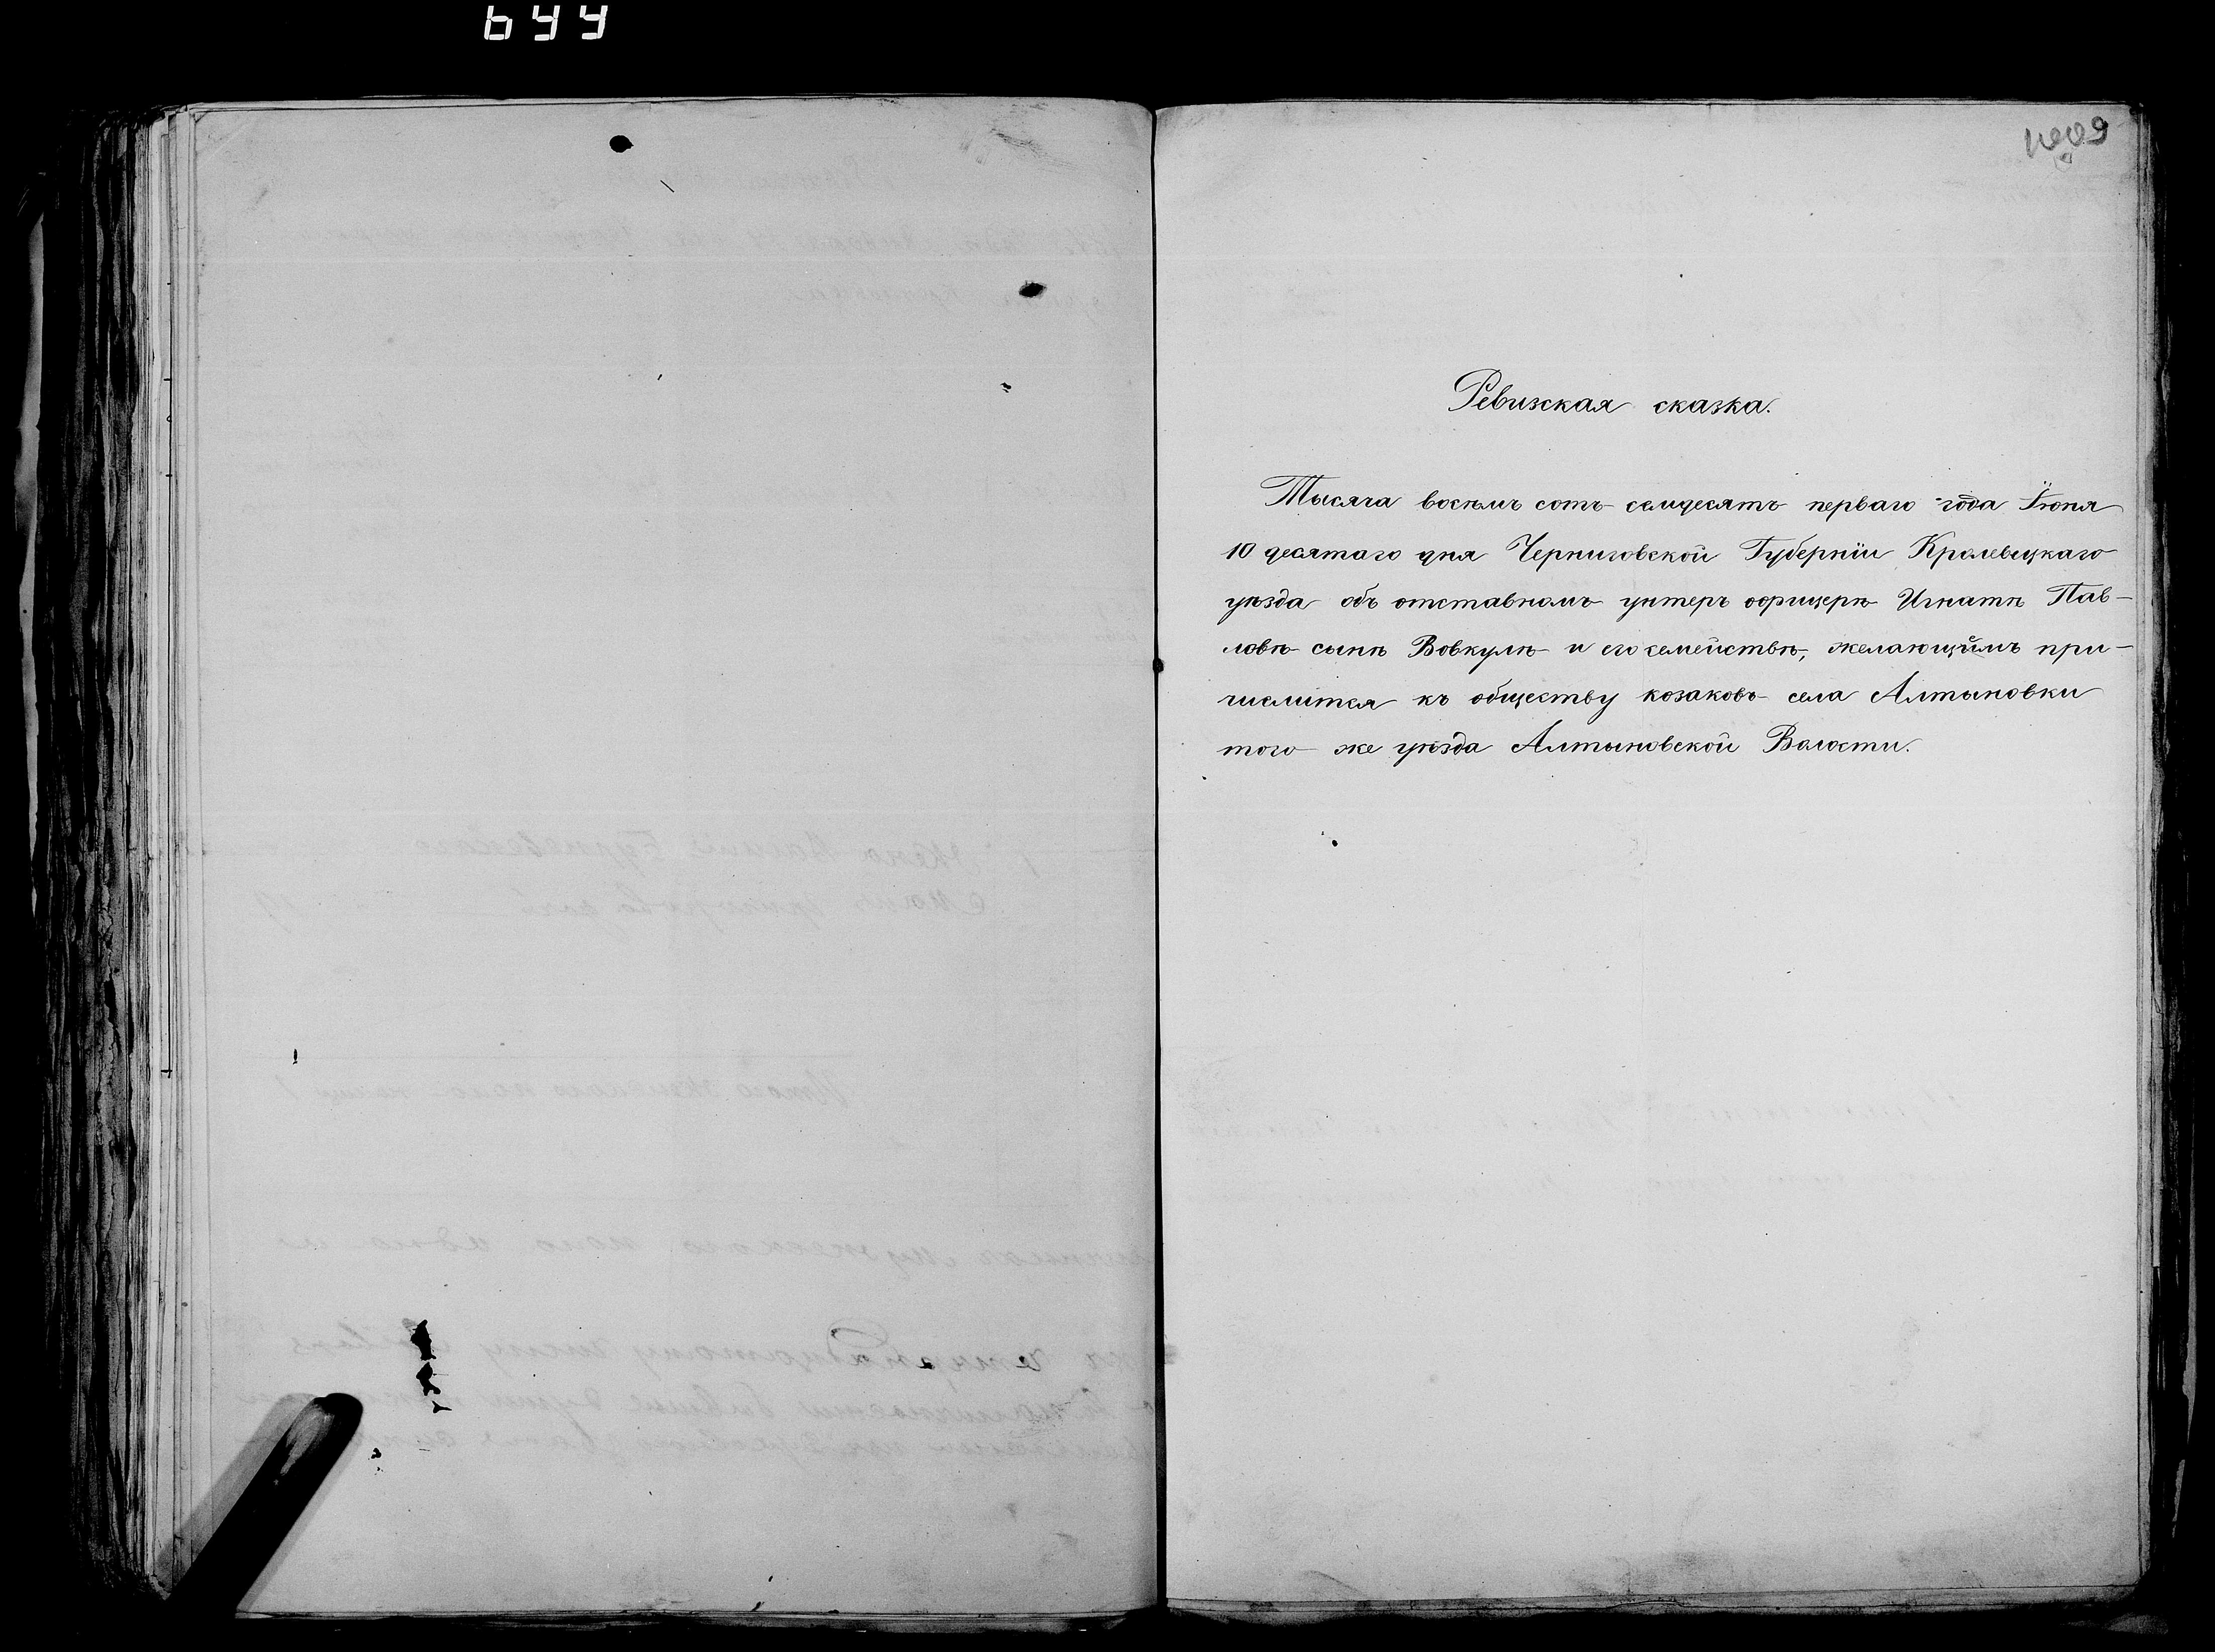 644
Ревизская сказка.
Тысяча восемъ сотъ семдесятъ перваго года Іюня
10 десятаго дня Черниговской Губерніи Кролевецкаго
уѣзда объ отставномъ унтеръ офицерѣ Игнатѣ Пав-
ловѣ сынѣ Вовкулѣ и его семействѣ, желающимъ при-
числится къ обществу козаковъ села Алтыновки
того же уѣзда Алтыновской Волости.